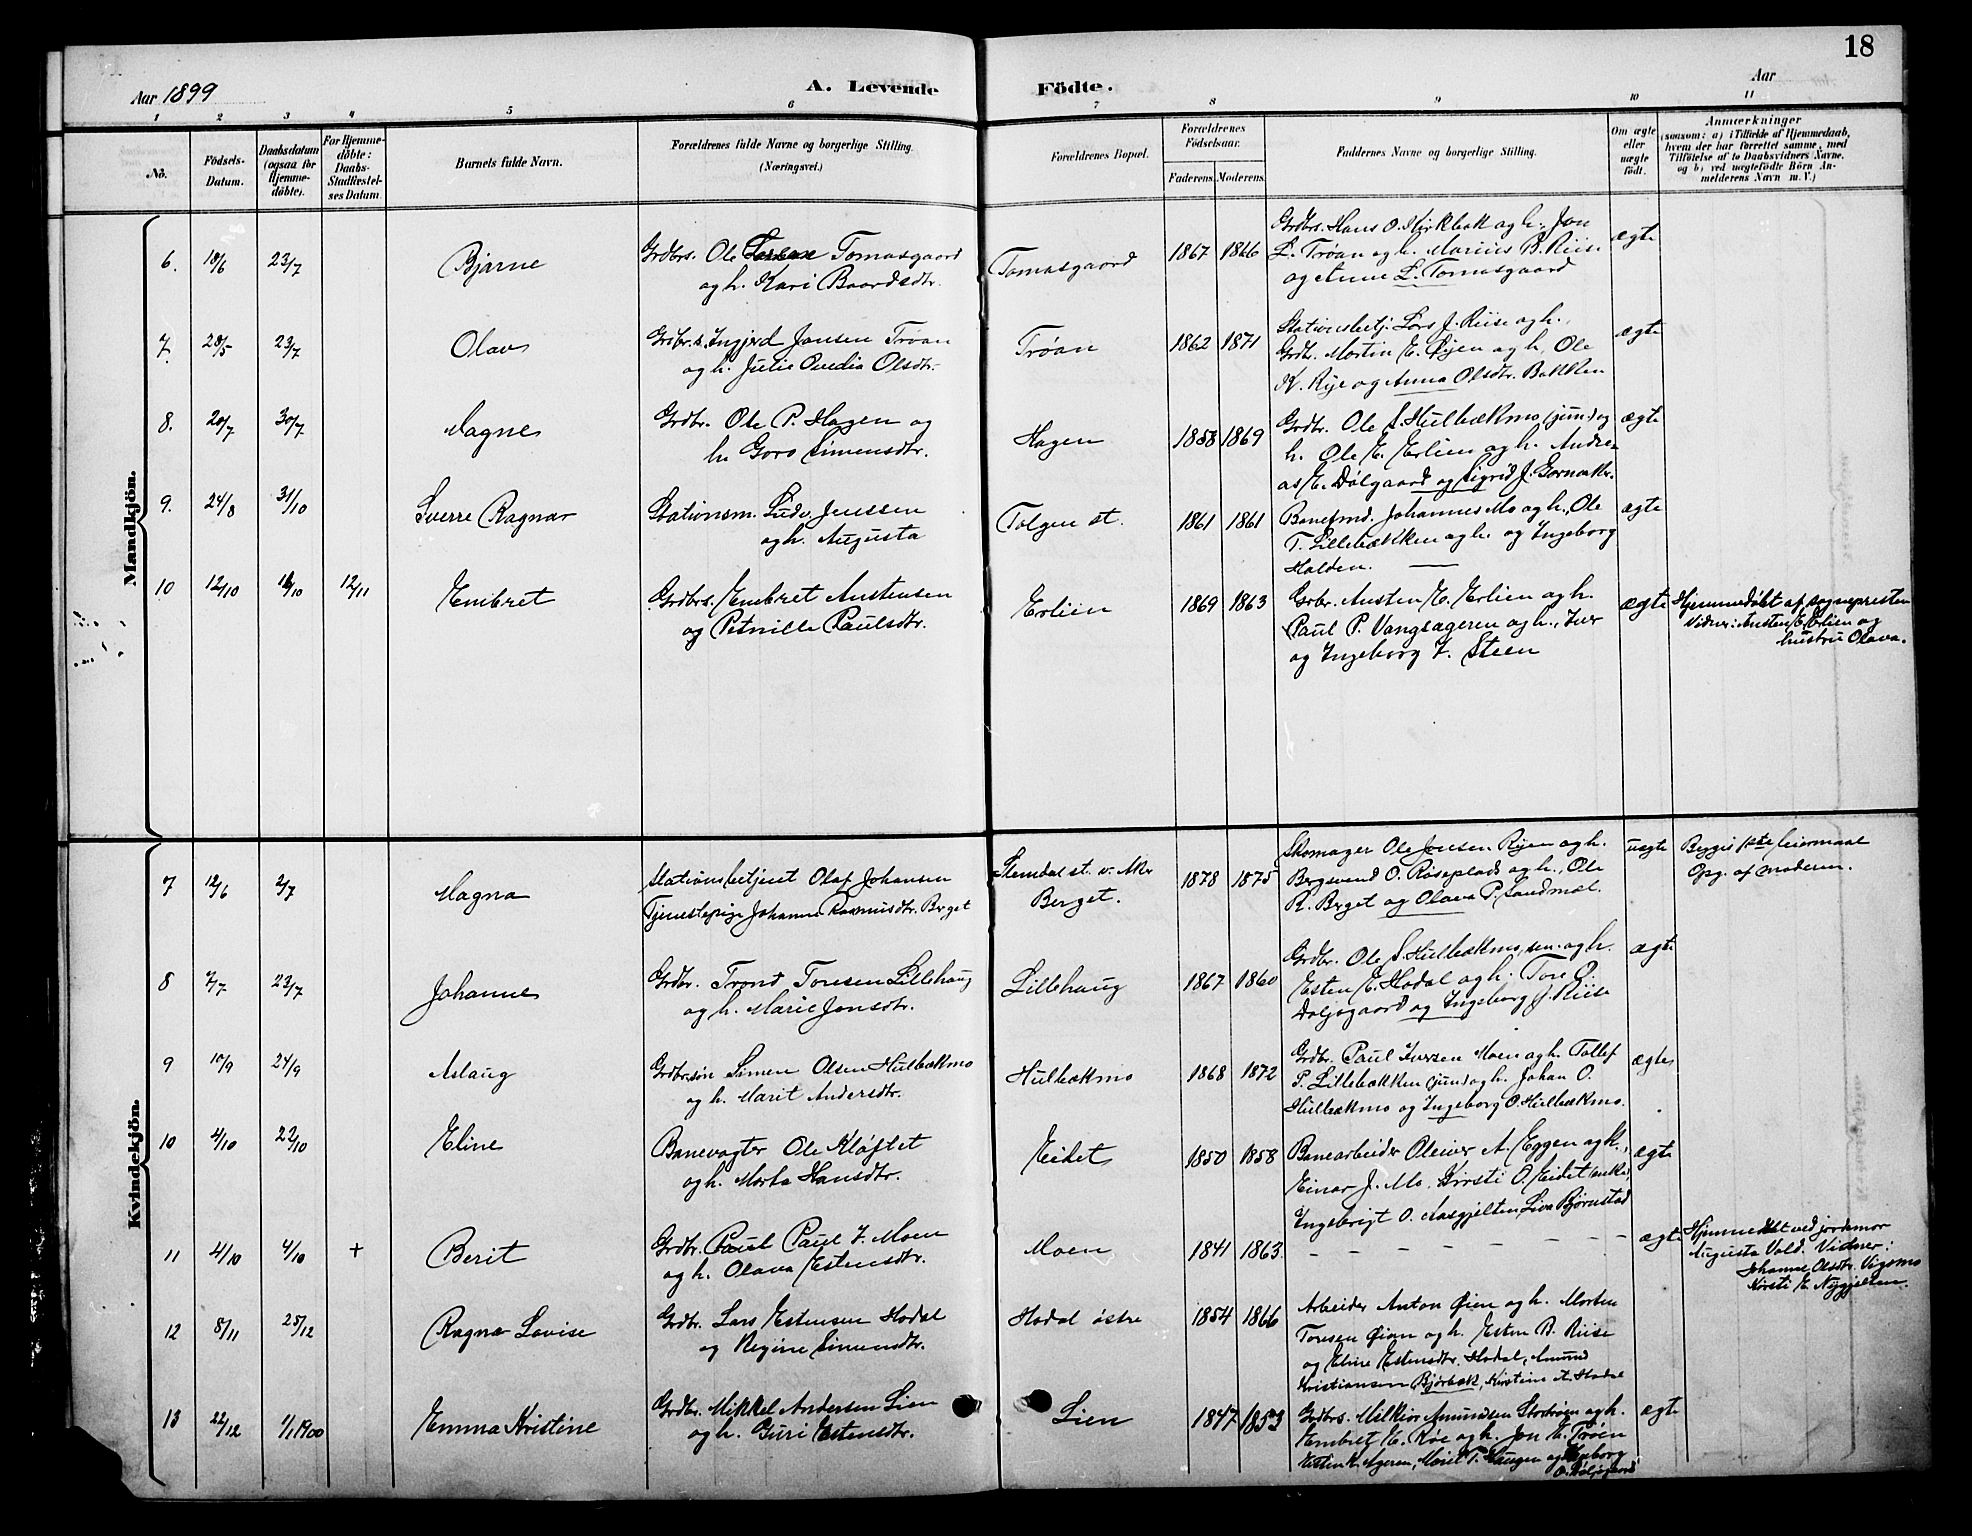 18
Aar 1899
A. Levende
Födte.
Aar
1 2 3 4 5 6 7 8 9 10 11
No.
Födsels-Datum.
Daabsdatum (ogsaa for Hjemme-döbte).
For Hjemme-döbte: Daabs-Stadfæstel-ses Datum.
Barnets fulde Navn.
Forældrenes fulde Navne og borgerlige Stilling.
(Næringsvei.)
Forældrenes Bopæl.
Forældrenes Födselsaar.
Faderens. Moderens.
Faddernes Navne og borgerlige Stilling.
Om ægte eller uægte födt.
Anmærkninger
(saasom: a) i Tilfælde af Hjemmedaab,
hvem der har forrettet samme, med
Tilföielse af to Daabsvidners Navne,
og b) ved uægtefödte Börn An-
melderens Navn m. V.)
Mandkjön.
6. 18/6 23/7 Bjarne
Grdbrs. Ole Tomasgaard
og h. Kari Baardsdtr.
Tomasgaard 1867 1866
Grdbrs. Hans O. Kirkbak og h. Jon
L. Trøan og h. Marius B. Riise
og Anne L. Tomasgaard
ægte
7. 28/5 23/7 Olav
Grdbr.s. Ingjerd Jonsen Trøan
og h. Julie Ovedia Olsdtr.
Trøan 1862 1871
Stationsbetj. Lars J. Riise og h.,
Grdb. Mortin E. Øien og h., Ole
K. Rye og Anna Olsdtr. Bakken
ægte
8. 20/7 30/7 Magne
Grdbr. Ole P. Hagen og
h. Goro Simensdtr.
Hagen 1858 1869
Grdbr. Ole S. Hulbækmo (jun) og
h. Ole E. Erlien og h. Andre-
as E. Dølgaard og Sigrid J.
ægte
9. 24/8 31/10 Sverre Ragnar
Stationsm. Ludv. Jenssen
og h. Augusta
Tolgen st. 1861 1861
Banefmd. Johannes Mo og h., Ole
T. Lillebækken og h. og Ingeborg
Holden.
ægte
10 12/10 16/10 12/11 Embret
Grdbrs. Embret Austensen
og Petnille Paulsdtr.
Erlien 1869 1863
Grbr. Austen E. Erlien og h.
Paul P. Vangsageren og h., Iver
og Ingeborg I. Steen
ægte
Hjemmedøbt af sognepresten
Vidner: Austen E. Erlien og
hustru Olava.
Kvindekjön.
7 12/6 2/7 Magna
Stationsbetjent Olaf Johansen
Tjenestepige Johanne Rasmusdtr. Berget
Slemdal st. v. Aker
Berget.
1878 1875
Skomager Ole Jonsen Rijen og h.
Bergsvend O. Røseplads og h., Ole
R. Berget og Olava P. Sandmæl.
uægte
Begges 1ste leiermaal
Opg. af moderen.
8 2/7 23/7 Johanne
Grdbr. Trond Toresen Lillehaug
og h. Marie Jonsdtr.
Lillehaug 1867 1860
Grdbr. Ole S. Hulbækmo, sen. og h.
Esten E. Hodal og h. Tore O.
Daljsgaard og Ingeborg J. Riise
ægte
9 10/9 24/9 Aslaug
Grdbr.søn Simen Olsen Hulbækmo
og h. Marit Andersdtr.
Hulbækmo 1868 1872
Grdbr. Paul Iversen Moen og h. Tollef
P. Lillebækken (jun) og h. Johan O.
Hulbækmo og Ingeborg O. Hulbækmo.
ægte
10 4/10 22/10 Eline
Banevogter Ole Kløftet
og h. Marta Hansdtr.
Eidet 1850 1858
Banearbeider Oleiver A. Eggen og h.,
Einar J. Mo, Kirsti O. Eidet (enke),
Ingebrigt O. Aasgjelten, Liva Bjørnstad
ægte
11 4/10 4/10 + Berit
Grdbr. Paul Paul I. Moen
og h. Olava Estensdtr.
Moen 1841 1863
– – – – – – – –
ægte
Hjemmedøbt ved jordemor
Augusta Vold. Vidner:
Johanne Olsdtr. Vigsmo
Kirsti E. Nygjelten.
12 8/11 25/12 Ragna Lovise
Grdbr. Lars Estensen Hodal
og Regine Simensdtr.
Hodal østre 1854 1866
Arbeider Anton Øien og h. Morten
Toresen Øian og h. Esten B. Riise
og Eline Estensdtr. Hodal, Amund
Kristiansen Bjørbæk, Kirstine A. Hodal
13 22/12 1/1 1900 Emma Kristine
Grdbr. Mikkel Andersen Lien
og h. Guri Estensdtr.
Lien 1847 1853
Grdbrs. Milkior Amundsen Storrøen og h.
Embret E. Røe og h. Jon E. Trøen
Kistin K. Ageren, Marit T. Haugen og Ingeborg
ægte